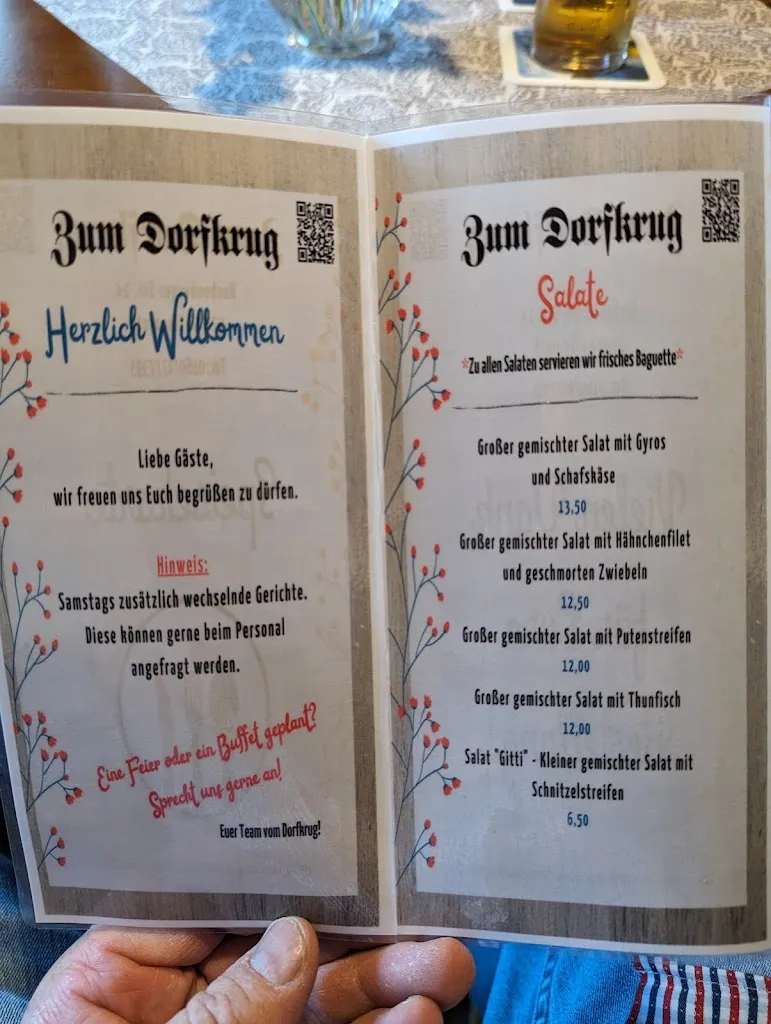 Zum Dorfkrug
Herzlich Willkommen
Liebe Gäste,
wir freuen uns Euch begrüßen zu dürfen.
Hinweis:
Samstags zusätzlich wechselnde Gerichte.
Diese können gerne beim Personal
angefragt werden.
Eine Feier oder ein Buffet geplant?
Sprecht uns gerne an!
Euer Team vom Dorfkrug!
Zum Dorfkrug
Salate
*Zu allen Salaten servieren wir frisches Baguette*
Großer gemischter Salat mit Gyros
und Schafskäse
13,50
Großer gemischter Salat mit Hähnchenfilet
und geschmorten Zwiebeln
12,50
Großer gemischter Salat mit Putenstreifen
12,00
Großer gemischter Salat mit Thunfisch
12,00
Salat "Gitti" - Kleiner gemischter Salat mit
Schnitzelstreifen
6,50